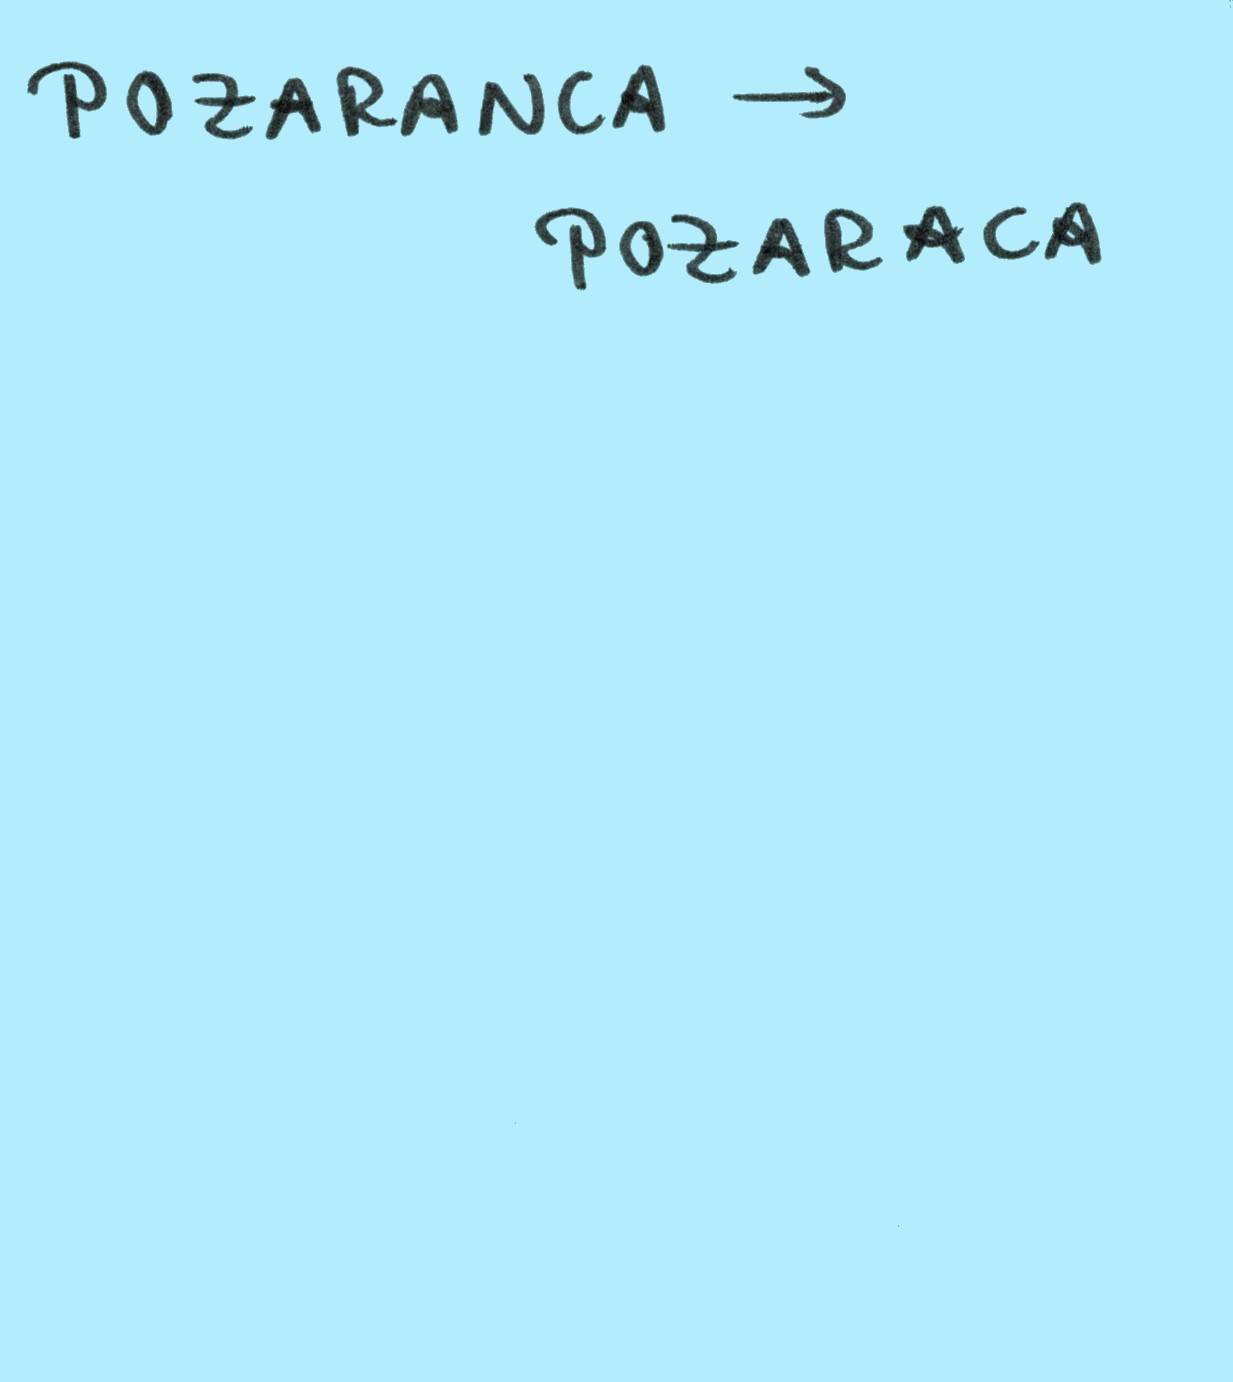 POZARANCA →
POZARACA